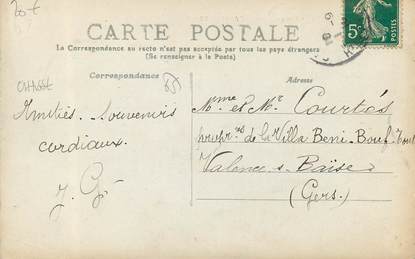 20 €
CARTE POSTALE
La Correspondance au recto n'est pas acceptée par tous les pays étrangers
(Se renseigner à la Poste)
5c
Correspondance
Adresse
Amitiés. Souvenirs
cordiaux.
J. G.
Mme et Mr Courtés
propres de la Villa Beni-Bouf-Tout
Valence s. Baïse
(Gers)